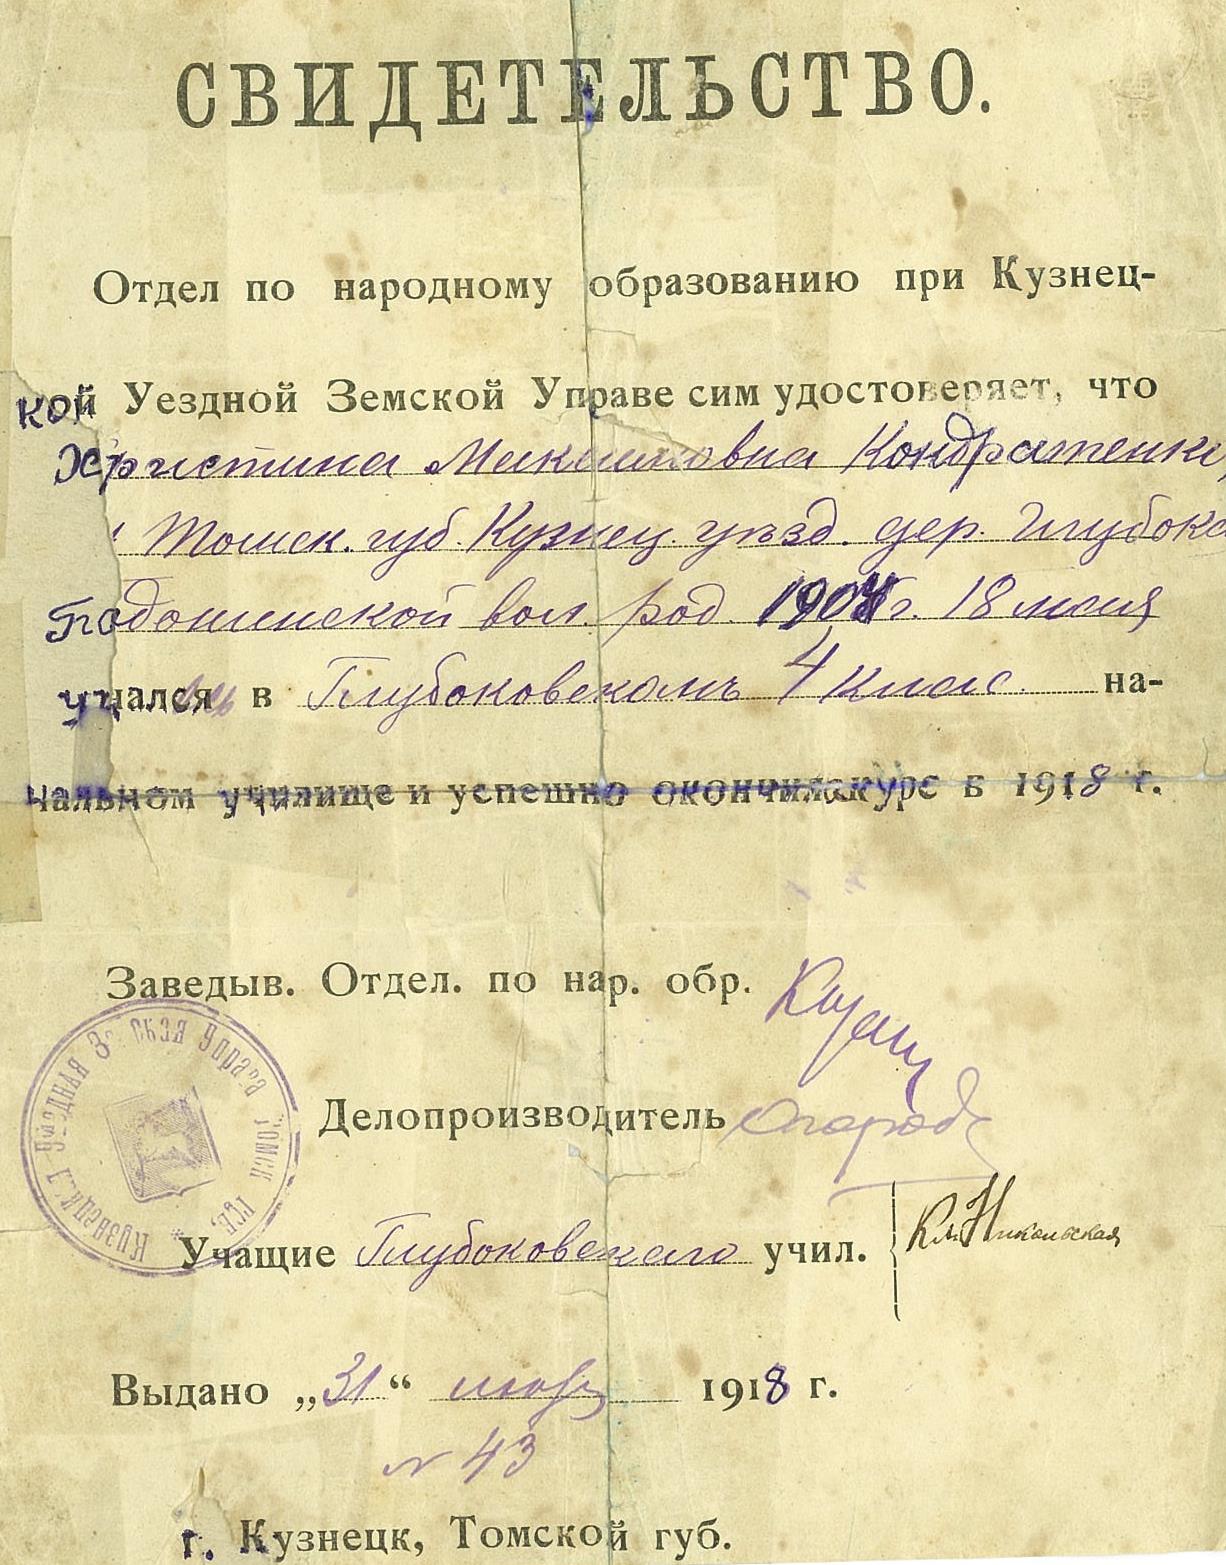 СВИДЕТЕЛЬСТВО.
Отдел по народному образованию при Кузнец-
кой Уездной Земской Управе сим удостоверяет, что
Христина Макаимовна Кондратенко
Томск. губ. Кузнец. уѣзд. дер. Глубока
Подонинской вол. род. 1904 г. 18 мая
учалсь в Глубоковскомъ 4 клас. на-
чальном училище и успешно окончила курс в 1918 г.
Заведыв. Отдел. по нар. обр.
Делопроизводитель
Учащие Глубоковскаго учил. Кл. Никольская
Выдано „31“ 1918 г.
N 43
г. Кузнецк, Томской губ.
Кузнецкая Уездная Земская Управа Томск губ.